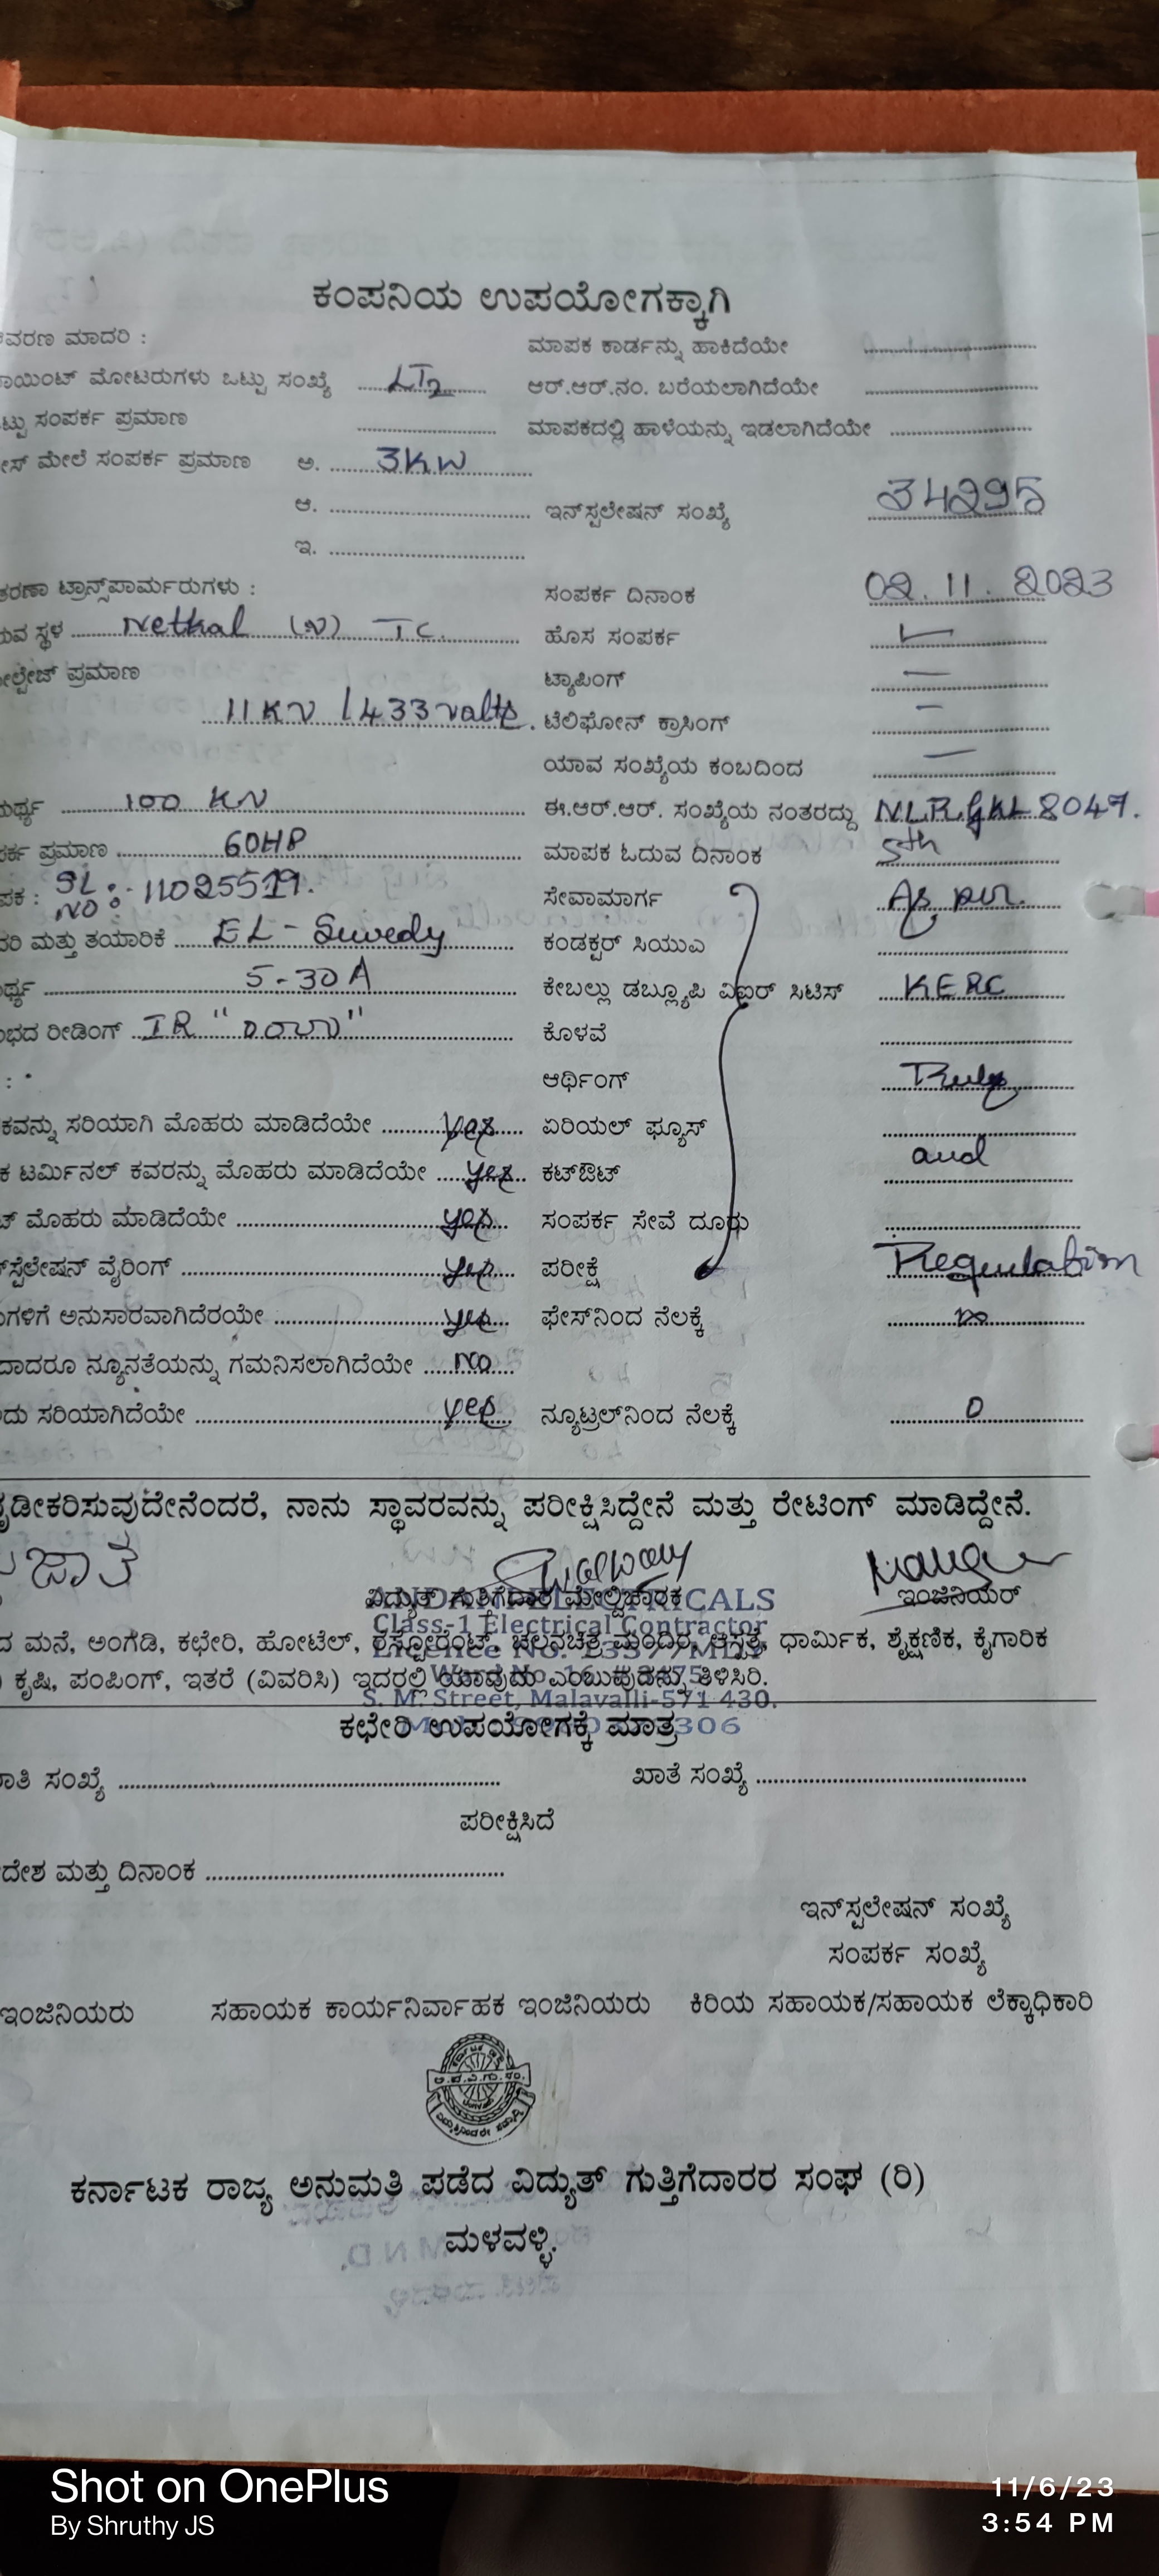 ಕಂಪನಿಯ ಉಪಯೋಗಕ್ಕಾಗಿ
ವರಣ ಮಾದರಿ : ಮಾಪಕ ಕಾರ್ಡನ್ನು ಹಾಕಿದೆಯೇ
ಾಯಿಂಟ್ ಮೋಟರುಗಳು ಒಟ್ಟು ಸಂಖ್ಯೆ LT2 ಆರ್.ಆರ್.ನಂ. ಬರೆಯಲಾಗಿದೆಯೇ
ಟ್ಟು ಸಂಪರ್ಕ ಪ್ರಮಾಣ ಮಾಪಕದಲ್ಲಿ ಹಾಳೆಯನ್ನು ಇಡಲಾಗಿದೆಯೇ
ೇಸ್ ಮೇಲೆ ಸಂಪರ್ಕ ಪ್ರಮಾಣ ಅ. 3KW
ಆ. ಇನ್‌ಸ್ಟಲೇಷನ್ ಸಂಖ್ಯೆ 34295
ಇ.
ತರಣಾ ಟ್ರಾನ್ಸ್‌ಪಾರ್ಮರುಗಳು : ಸಂಪರ್ಕ ದಿನಾಂಕ 02.11.2023
ುವ ಸ್ಥಳ Nethal (N) TC. ಹೊಸ ಸಂಪರ್ಕ
ೋಲ್ಟೇಜ್ ಪ್ರಮಾಣ ಟ್ಯಾಪಿಂಗ್ —
11KV / 433 volts. ಟೆಲಿಫೋನ್ ಕ್ರಾಸಿಂಗ್ —
ಯಾವ ಸಂಖ್ಯೆಯ ಕಂಬದಿಂದ —
ಮರ್ಥ್ಯ 100 KV ಈ.ಆರ್.ಆರ್. ಸಂಖ್ಯೆಯ ನಂತರದ್ದು
ಪರ್ಕ ಪ್ರಮಾಣ 60HP ಮಾಪಕ ಓದುವ ದಿನಾಂಕ 5th
ಪಕ : SL NO : 11025519. ಸೇವಾಮಾರ್ಗ As per.
ದರಿ ಮತ್ತು ತಯಾರಿಕೆ EL-Swedy ಕಂಡಕ್ಟರ್ ಸಿಯುಎ
ರ್ಥ್ಯ 5-30A ಕೇಬಲ್ಲು ಡಬ್ಲ್ಯೂಪಿ ವಿಐಆರ್ ಸಿಟಿಸ್ KERC
ಂಭದ ರೀಡಿಂಗ್ IR ಕೊಳವೆ
: ಆರ್ಥಿಂಗ್ Rules
ಕವನ್ನು ಸರಿಯಾಗಿ ಮೊಹರು ಮಾಡಿದೆಯೇ yes ಏರಿಯಲ್ ಫ್ಯೂಸ್
ಕ ಟರ್ಮಿನಲ್ ಕವರನ್ನು ಮೊಹರು ಮಾಡಿದೆಯೇ yes ಕಟ್‌ಔಟ್ and
ಟ್ ಮೊಹರು ಮಾಡಿದೆಯೇ yes ಸಂಪರ್ಕ ಸೇವೆ ದೂರು
್‌ಸ್ಟೆಲೇಷನ್ ವೈರಿಂಗ್ yes ಪರೀಕ್ಷೆ Regulation
ುಗಳಿಗೆ ಅನುಸಾರವಾಗಿದೆರಯೇ yes ಫೇಸ್‌ನಿಂದ ನೆಲಕ್ಕೆ ∞
ದಾದರೂ ನ್ಯೂನತೆಯನ್ನು ಗಮನಿಸಲಾಗಿದೆಯೇ no
ದು ಸರಿಯಾಗಿದೆಯೇ yes ನ್ಯೂಟ್ರಲ್‌ನಿಂದ ನೆಲಕ್ಕೆ 0
ೃಡೀಕರಿಸುವುದೇನೆಂದರೆ, ನಾನು ಸ್ಥಾವರವನ್ನು ಪರೀಕ್ಷಿಸಿದ್ದೇನೆ ಮತ್ತು ರೇಟಿಂಗ್ ಮಾಡಿದ್ದೇನೆ.
ವಿದ್ಯುತ್ ಗುತ್ತಿಗೆದಾರ ಮೇಲ್ವಿಚಾರಕ ಇಂಜಿನಿಯರ್
Class-1 Electrical Contractor
ದ ಮನೆ, ಅಂಗಡಿ, ಕಛೇರಿ, ಹೋಟೆಲ್, ರೆಸ್ಟೋರೆಂಟ್, ಚಲನಚಿತ್ರ ಮಂದಿರ, ಆಸ್ಪತ್ರೆ, ಧಾರ್ಮಿಕ, ಶೈಕ್ಷಣಿಕ, ಕೈಗಾರಿಕ
ಕೃಷಿ, ಪಂಪಿಂಗ್, ಇತರೆ (ವಿವರಿಸಿ) ಇದರಲ್ಲಿ ಯಾವುದು ಎಂಬುಕುವುದನ್ನು ತಿಳಿಸಿರಿ.
S. M. Street, Malavalli-571 430.
ಕಛೇರಿ ಉಪಯೋಗಕ್ಕೆ ಮಾತ್ರ
ಾತಿ ಸಂಖ್ಯೆ ಖಾತೆ ಸಂಖ್ಯೆ
ಪರೀಕ್ಷಿಸಿದೆ
ದೇಶ ಮತ್ತು ದಿನಾಂಕ
ಇನ್‌ಸ್ಟಲೇಷನ್ ಸಂಖ್ಯೆ
ಸಂಪರ್ಕ ಸಂಖ್ಯೆ
ಇಂಜಿನಿಯರು ಸಹಾಯಕ ಕಾರ್ಯನಿರ್ವಾಹಕ ಇಂಜಿನಿಯರು ಕಿರಿಯ ಸಹಾಯಕ/ಸಹಾಯಕ ಲೆಕ್ಕಾಧಿಕಾರಿ
ಕರ್ನಾಟಕ ರಾಜ್ಯ ಅನುಮತಿ ಪಡೆದ ವಿದ್ಯುತ್ ಗುತ್ತಿಗೆದಾರರ ಸಂಘ (ರಿ)
ಮಳವಳ್ಳಿ.
Shot on OnePlus
By Shruthy JS
11/6/23
3:54 PM